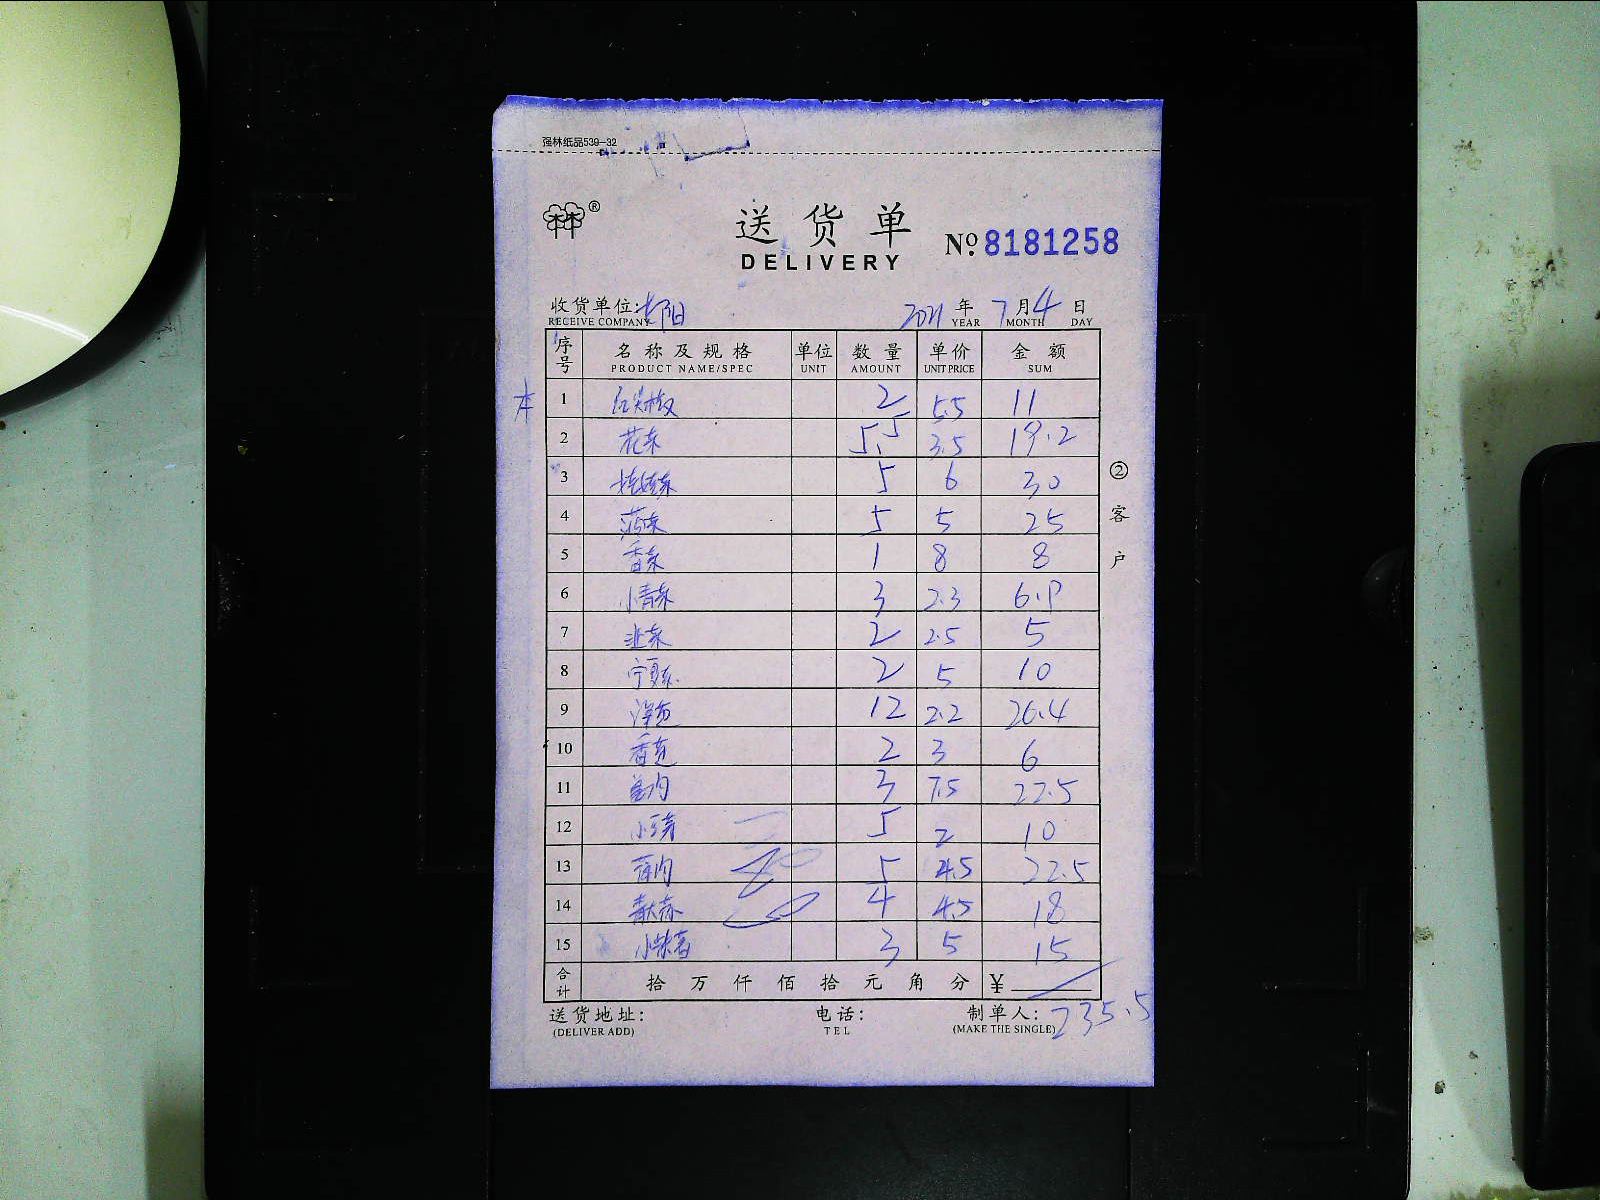 强林纸品539-32
林®
送货单
DELIVERY
No. 8181258
收货单位: 2021年7月4日
RECEIVE COMPANY YEAR MONTH DAY
序号 名称及规格 单位 数量 单价 金额
PRODUCT NAME/SPEC UNIT AMOUNT UNIT PRICE SUM
本 1 红尖椒 2 5.5 11
2 花菜 5.5 3.5 19.2
3 娃娃菜 5 6 30
4 菠菜 5 5 25
5 香菜 1 8 8
6 小青菜 3 2.3 6.9
7 韭菜 2 2.5 5
8 宁夏菜 2 5 10
9 洋葱 12 2.2 26.4
10 香芹 2 3 6
11 姜肉 3 7.5 22.5
12 小豆芽 5 2 10
13 蒜肉 5 4.5 22.5
14 青大蒜 4 4.5 18
15 3 5 15
合计 拾万仟佰拾元角分 ¥
235.5
送货地址: 电话: 制单人:
(DELIVER ADD) TEL (MAKE THE SINGLE)
②客户